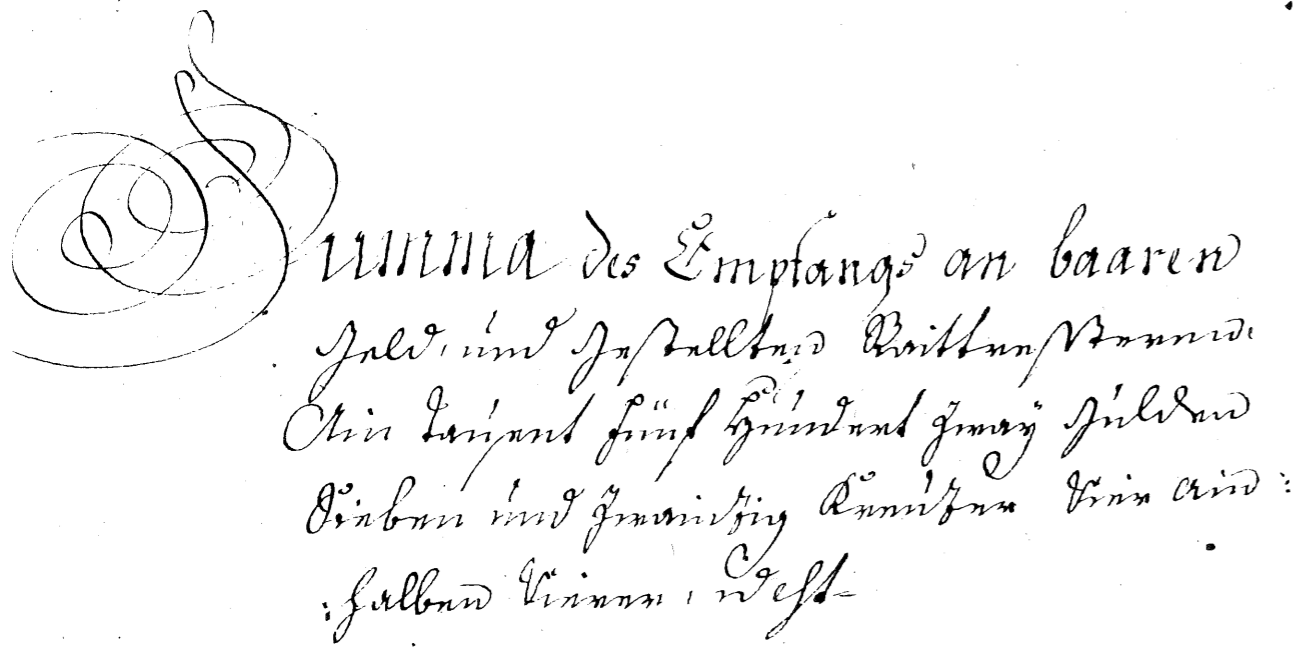 Summa des Empfangs an baaren
Geld, und gestellten Raittresten
Ain Tausent fünf Hundert zway Gulden
Sieben und zwainzig Kreuzer Vier ain:
:halben Vierer,